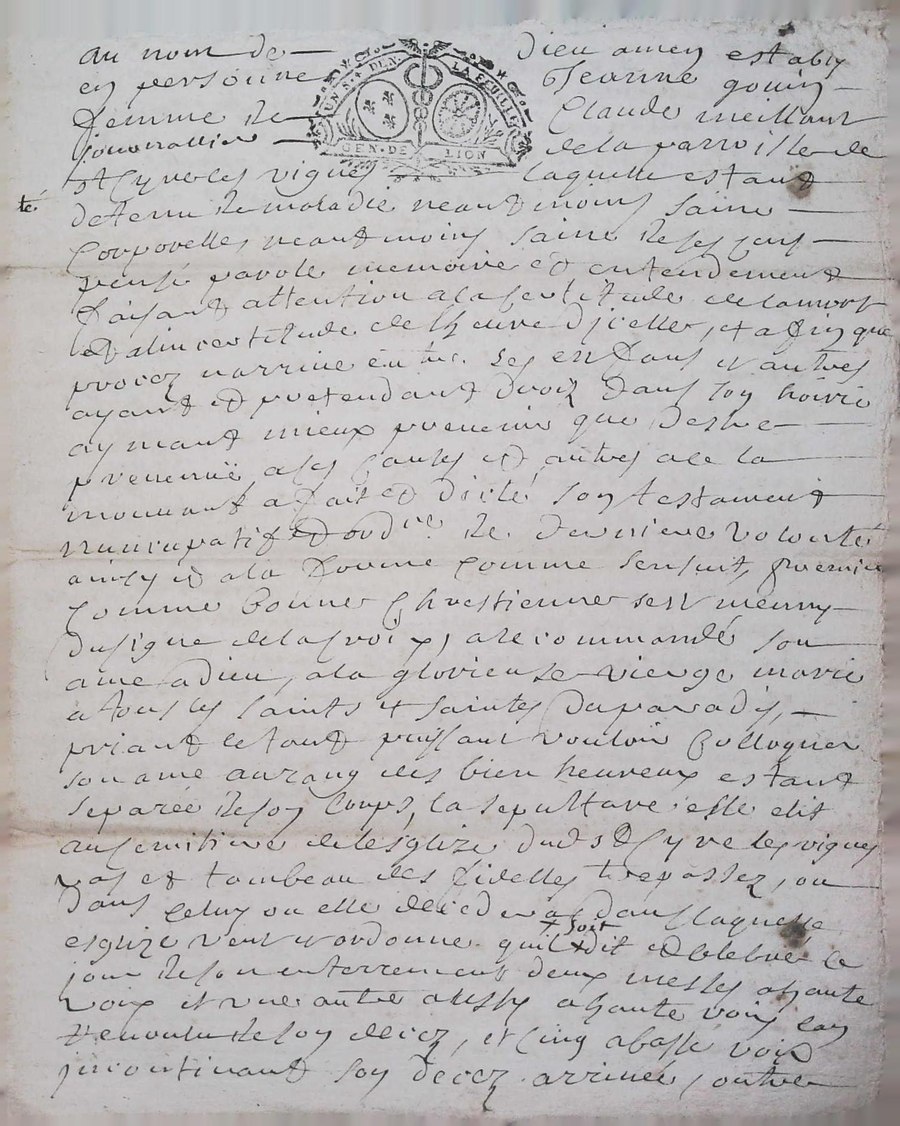 au nom de Dieu amen establÿ
en personne Jeanne gouin
femme de Claude meillant
UN S. 4 DEN. LA FEUILLE
GEN. DE LION
de la parroisse de
st Cyre les vignes laquelle estant
té
detenue de maladie neantmoins saine
corporelles neantmoins saine de ses cens
pensé parole memoire et entendement
faisant attention a la sertitude de la mort
et a lincertitude de lheure dicelle, et afin que
procez narrive entre ses enfans et autres
ayant et pretendant droiz dans son hoirie
aymant mieux prevenir que destre
prevenuë a ses causes et autres a ce la
mouvant a fait et dicté son testament
nuncupatif et ordre. de derniere volonté
ainsy et a la forme comme sensuit, premier
comme bonne Chrestienne sest muny
du signe de la croix, a recommandé son
ame a dieu, a la glorieuse vierge marie
a tous les saints et saintes du paradis,
priant le tout puissant vouloir colloquer
son ame au rang des bien heureux estant
separée de son corps, la sepulture elle elit
au semitiere de lesglize dud st Cyre les vignes
vas et tombeau des fidelles trepassez, ou
dans celuy ou elle decedera dans laquelle
+ soit
esglize veut et ordonne quil + dit et celebré le
jour de son enterrement deux messes a haute
voix et une autre aussy a haute voix lan
revoulu de son decez, et cinq a basse voix
incontinant son decez arrivée, outre